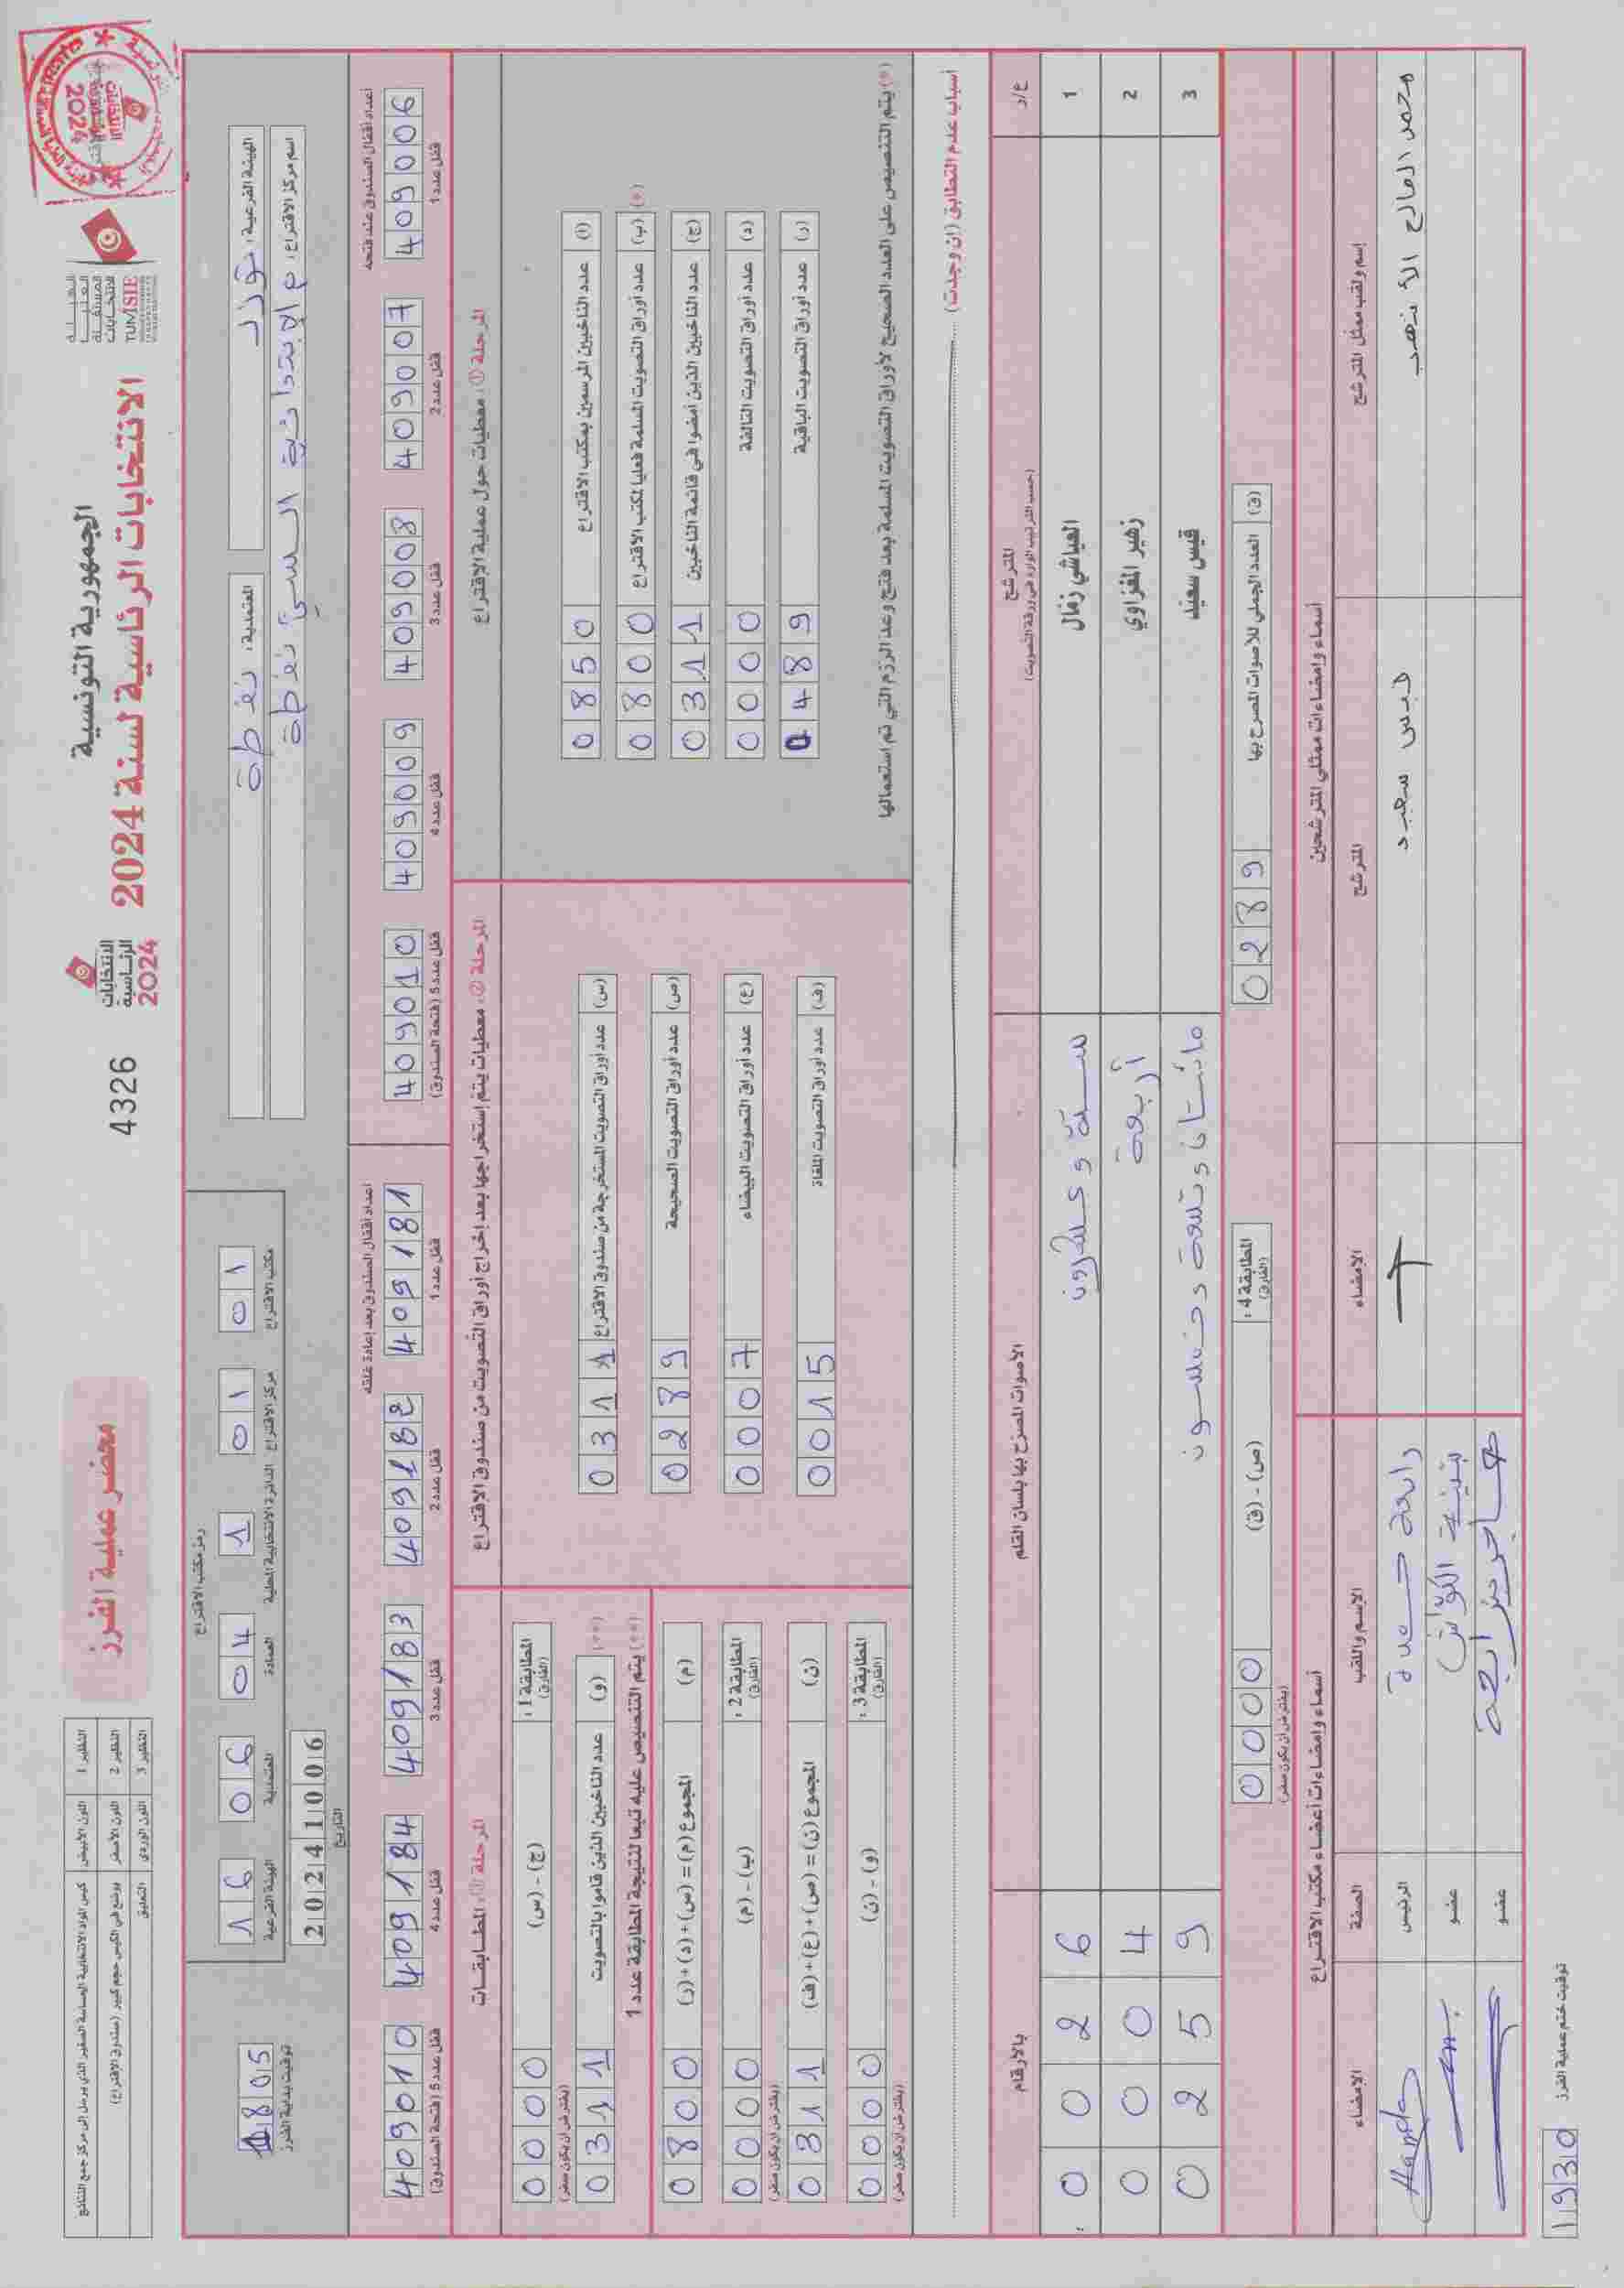 الجمهورية التونسية
الانتخابات الرئاسية لسنة 2024
الهيئة
العليا
المستقلة
للانتخابات
TUNISIE
الانتخابات
الرئاسية
2024
4326
محضر عملية الفرز
النظير 1 اللون الأبيض كيس المواد الانتخابية الحساسة الصغير الذي يرسل إلى مركز جمع النتائج
النظير 2 اللون الأصفر يوضع في الكيس حجم كبير (صندوق الاقتراع)
النظير 3 اللون الوردي التعليق
الهيئة الفرعية: توزر
المعتمدية: نفطة
اسم مركز الاقتراع: م الابتدائية السني نفطة
رمز مكتب الاقتراع
16 الهيئة الفرعية
06 المعتمدية
04 العمادة
1 الدائرة الانتخابية المحلية
01 مركز الاقتراع
01 مكتب الاقتراع
20241006
التاريخ
1805
توقيت بداية الفرز
أعداد أقفال الصندوق عند فتحه
409006 قفل عدد 1
409007 قفل عدد 2
409008 قفل عدد 3
409009 قفل عدد 4
409010 قفل عدد 5 (فتحة الصندوق)
أعداد أقفال الصندوق بعد إعادة غلقه
409181 قفل عدد 1
409182 قفل عدد 2
409183 قفل عدد 3
409184 قفل عدد 4
409010 قفل عدد 5 (فتحة الصندوق)
المرحلة ①: معطيات حول عملية الاقتراع
(أ) عدد الناخبين المرسمين بمكتب الاقتراع 0850
(ب) عدد أوراق التصويت المسلمة فعليا لمكتب الاقتراع 0800 (*)
(ج) عدد الناخبين الذين أمضوا في قائمة الناخبين 0311
(د) عدد أوراق التصويت التالفة 0000
(ر) عدد أوراق التصويت الباقية 0489
(*) يتم التنصيص على العدد الصحيح لأوراق التصويت المسلمة بعد فتح وعدّ الرزم التي تم استعمالها
المرحلة ②: معطيات يتم إستخراجها بعد إخراج أوراق التصويت من صندوق الاقتراع
(س) عدد أوراق التصويت المستخرجة من صندوق الاقتراع 0311
(ص) عدد أوراق التصويت الصحيحة 0289
(ع) عدد أوراق التصويت البيضاء 0007
(ف) عدد أوراق التصويت الملغاة 0015
المرحلة ③: المطابقات
المطابقة 1: (الفارق) (ج) - (س) 0000
(يفترض أن يكون صفر)
(**) (و) عدد الناخبين الذين قاموا بالتصويت 0311
(**) يتم التنصيص عليه تبعا لنتيجة المطابقة عدد 1
(م) المجموع (م) = (س) + (د) + (ر) 0800
المطابقة 2: (الفارق) (ب) - (م) 0000
(يفترض أن يكون صفر)
(ن) المجموع (ن) = (ص) + (ع) + (ف) 0311
المطابقة 3: (الفارق) (و) - (ن) 0000
(يفترض أن يكون صفر)
أسباب عدم التطابق (إن وجدت)
ع/ر المترشح (حسب الترتيب الوارد في ورقة التصويت) الأصوات المصرّح بها بلسان القلم بالأرقام
1 العياشي زمال ستة وعشرون 0026
2 زهير المغزاوي أربعة 0004
3 قيس سعيّد مائتان وتسعة وخمسون 0259
(ق) العدد الجملي للأصوات المصرح بها 0289
المطابقة 4: (الفارق) (ص) - (ق) 0000
(يفترض أن يكون صفر)
أسماء وإمضاءات ممثلي المترشحين
إسم ولقب ممثل المترشح المترشح الامضاء
محمد الصالح قيس سعيد
أسماء وإمضاءات أعضاء مكتب الاقتراع
الاسم واللقب الصفة الامضاء
الرئيس
عضو
عضو
توقيت ختم عملية الفرز 1930